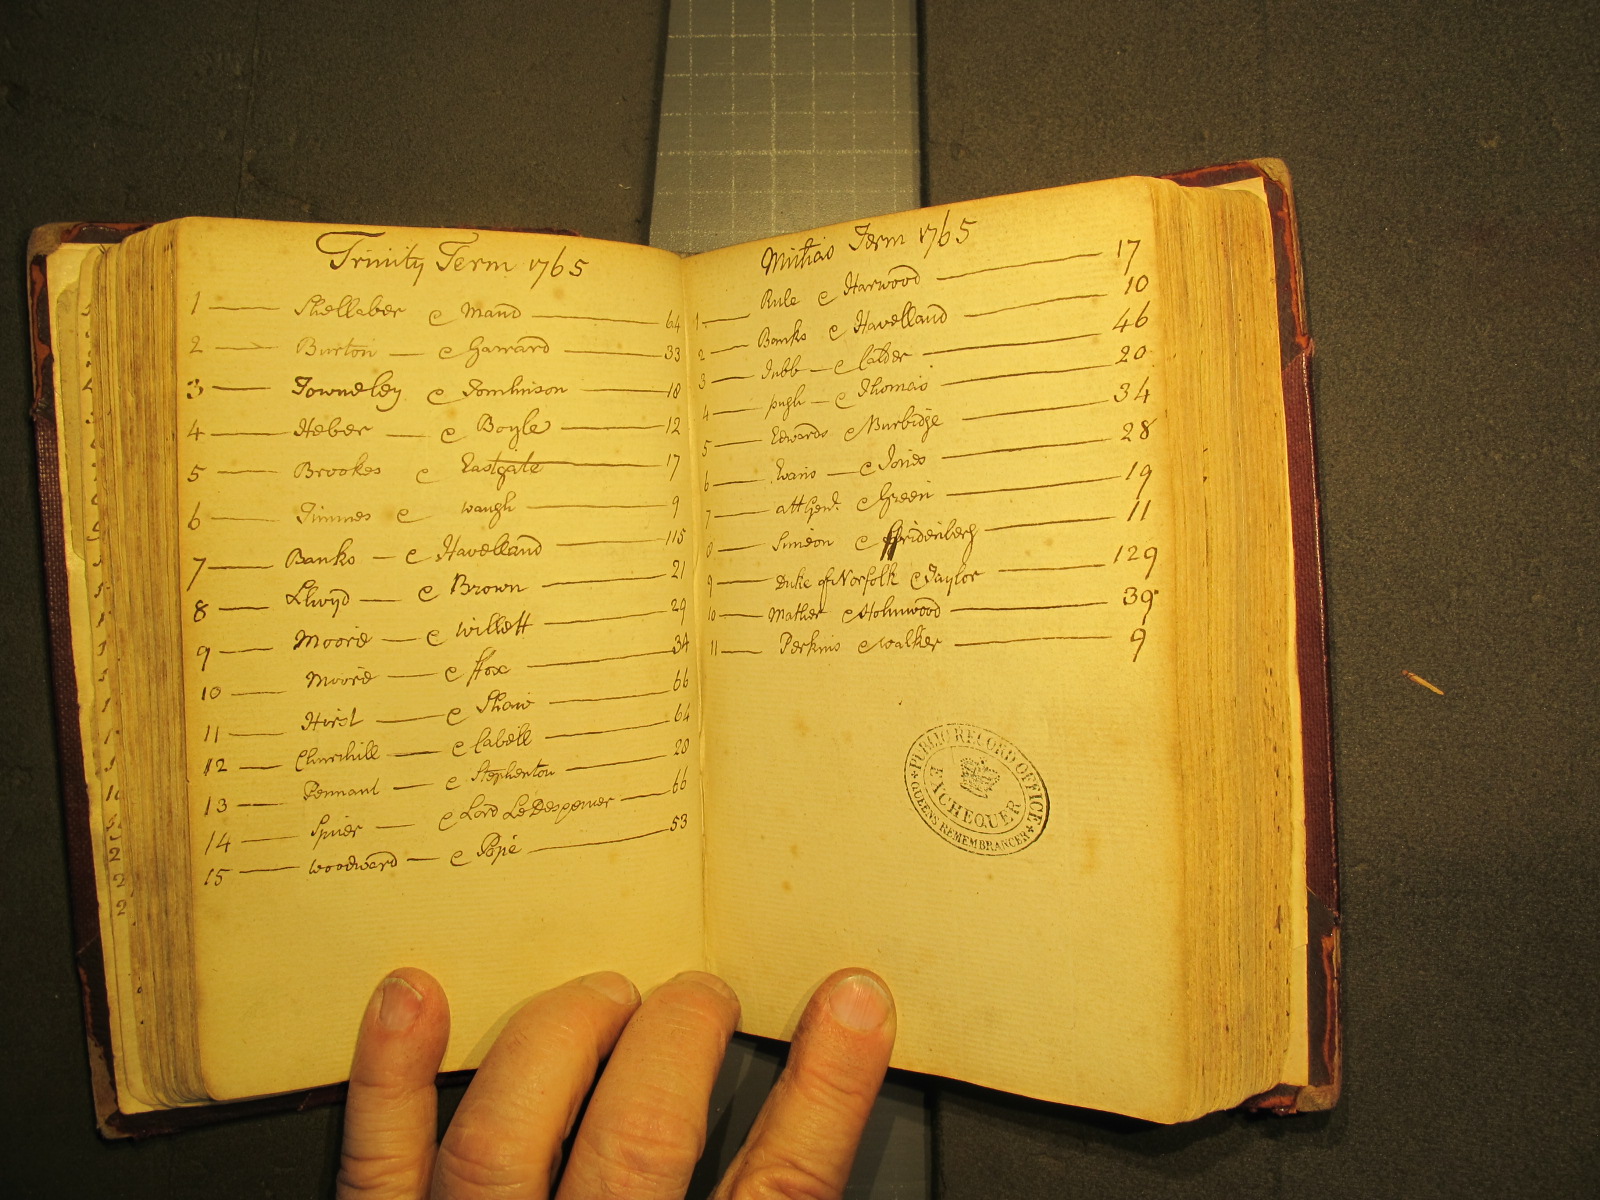 Trinity Term 1765
1 — Shellaber c Mand — 64
2 — Burton — c Garrard — 33
3 — Towneley c Tomlinson — 18
4 — Heber — c Boyle — 12
5 — Brookes c Eastgate — 17
6 — Timmes c Waugh — 9
7 — Banks — c Havelland — 115
8 — Llwyd — c Brown — 21
9 — Moore — c Willett — 29
10 — Moore — c ffox — 34
11 — Hirst — c Shaw — 66
12 — Churchill — c Cabell — 64
13 — Pennant — c Stephenton — 20
14 — Spier — c Lord LeDespencer — 66
15 — Woodward — c Pope — 53
Michas Term 1765
1 — Rule c Harwood — 17
2 — Banks c Havelland — 10
3 — Jubb — c Calder — 46
4 — pugh — c Thomas — 20
5 — Edwards c Burbidge — 34
6 — Evans — c Jones — 28
7 — att Genl. c Green — 19
8 — Simeon c ffridenberg — 11
9 — Duke of Norfolk c Taylor — 129
10 — Mather c Holmwood — 39
11 — Perkins c Walker — 9
PUBLIC RECORD OFFICE
EXCHEQUER
QUEENS REMEMBRANCER